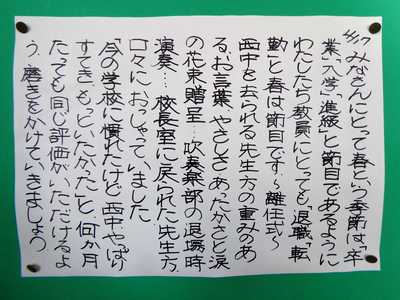 3/31 みなさんにとって春という季節は、「卒
業」「入学」「進級」と節目であるように
わたしたち教員にとっても「退職」「転
勤」と春は節目です。〜離任式〜
西中を去られる先生方の重みのあ
る、お言葉、やさしさ、あったかさと涙
の花束贈呈…吹奏楽部の退場時
演奏…校長室に戻られた先生方、
口々におっしゃっていました
「今の学校に慣れたけど、西中、やっぱり
すてき、もどりたかった」と、何か月
たっても同じ評価がいただけるよ
う、磨きをかけていきましょう